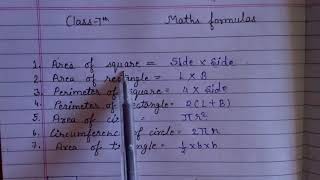 Class-7th Maths formulas
1. Area of square = Side × Side
2. Area of rectangle = L × B
3. Perimeter of square = 4 × Side
4. Perimeter of rectangle = 2(L+B)
5. Area of circle = πr²
6. Circumference of circle = 2πr
7. Area of triangle = ½×b×h